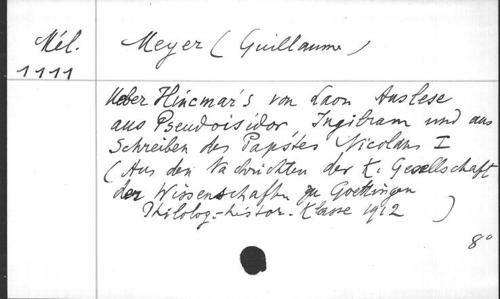 Mél.
1111
Meyer (Guillaume)
Ueber Hincmar's von Laon Auslese
aus Pseudoisidor Ingilram und aus
Schreiben des Papstes Nicolaus I
(Aus den Nachrichten der K. Gesellschaft
der Wissenschaften zu Goettingen
Philolog.-histor. Klasse 1912)
8°